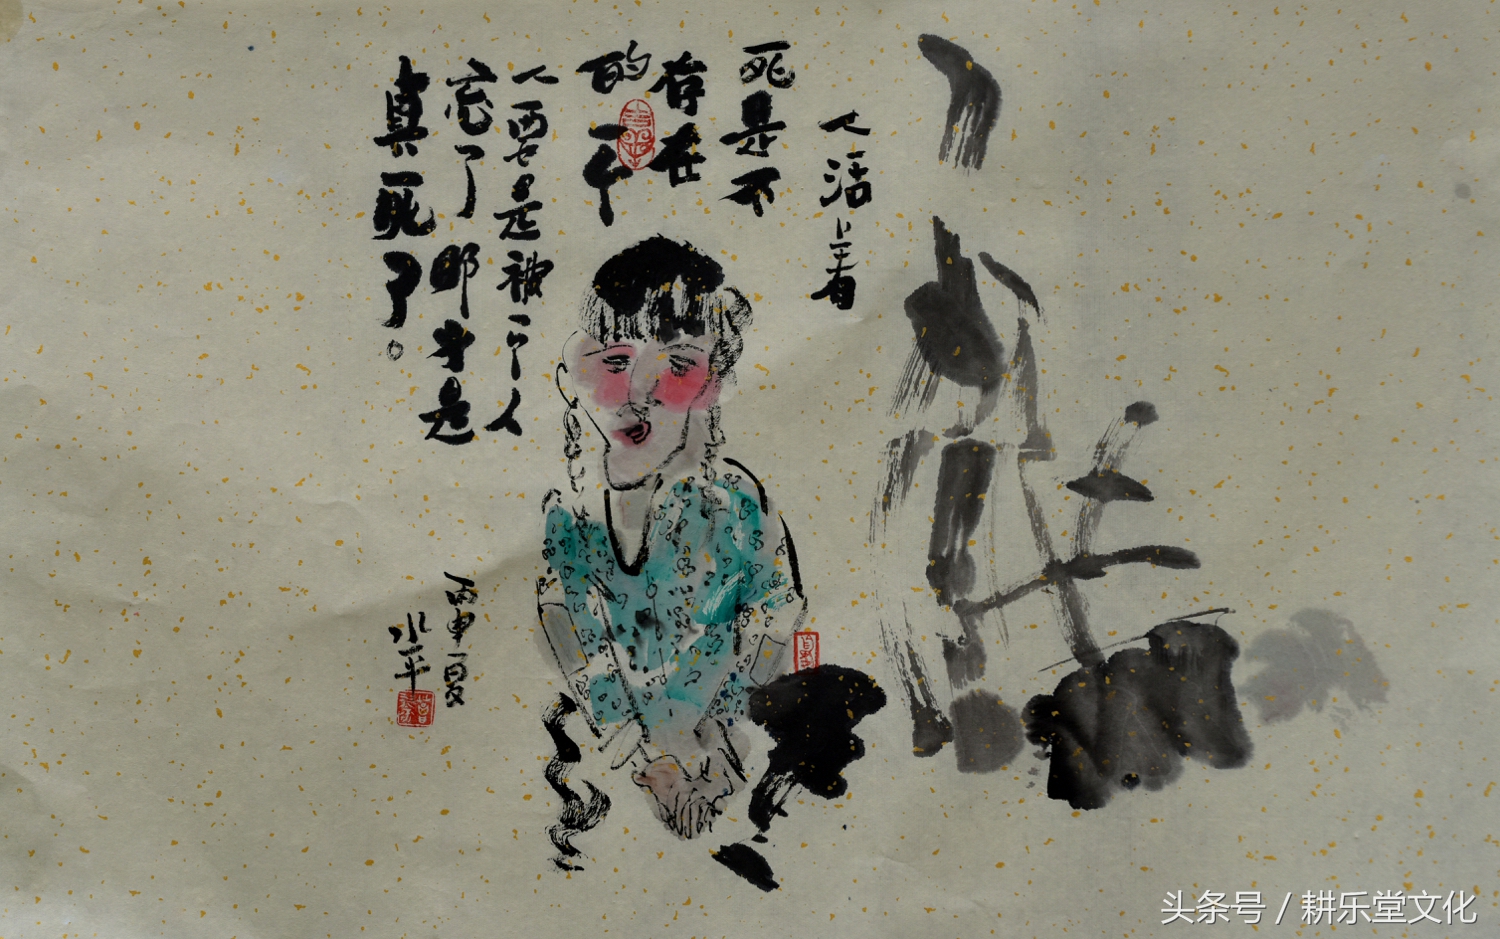 人活着
死是不
存在
的一个
人要是被一个人
忘了那才是
真死了。
丙申夏
水平
头条号 / 耕乐堂文化